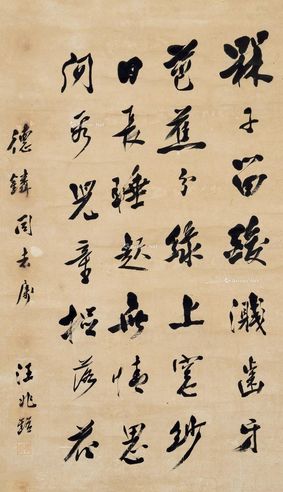 槑子留酸濺齒牙
芭蕉分綠上窗紗
日長睡起無情思
閒看兒童捉落花
德鏻同志屬
汪兆銘